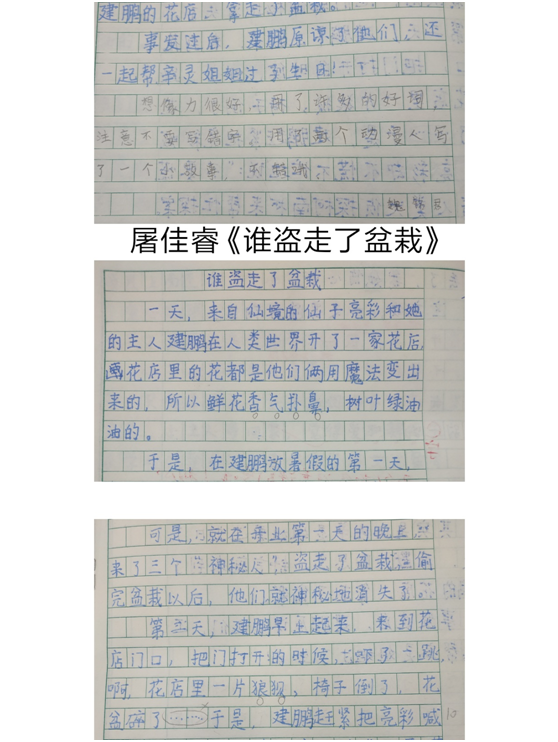 建鹏的花店，拿走了盆栽。
事发过后，建鹏原谅了他们，还
一起帮辛灵姐姐
想像力很好，用了许多的好词，
注意不要写错
了一个小故事，不错哦
屠佳睿《谁盗走了盆栽》
谁盗走了盆栽
一天，来自仙境的仙子亮彩和她
的主人建鹏在人类世界开了一家花店，
花店里的花都是他们俩用魔法变出
来的，所以鲜花香气扑鼻，树叶绿油
油的。
于是，在建鹏放暑假的第一天，
可是，就在开业第一天的晚上
来了三个“神秘人”盗走了盆栽，偷
完盆栽以后，他们就神秘地消失了。
第二天，建鹏早上起来，来到花
店门口，把门打开的时候，吓了一跳
啊，花店里一片狼狈，椅子倒了，花
盆碎了……于是，建鹏赶紧把亮彩喊